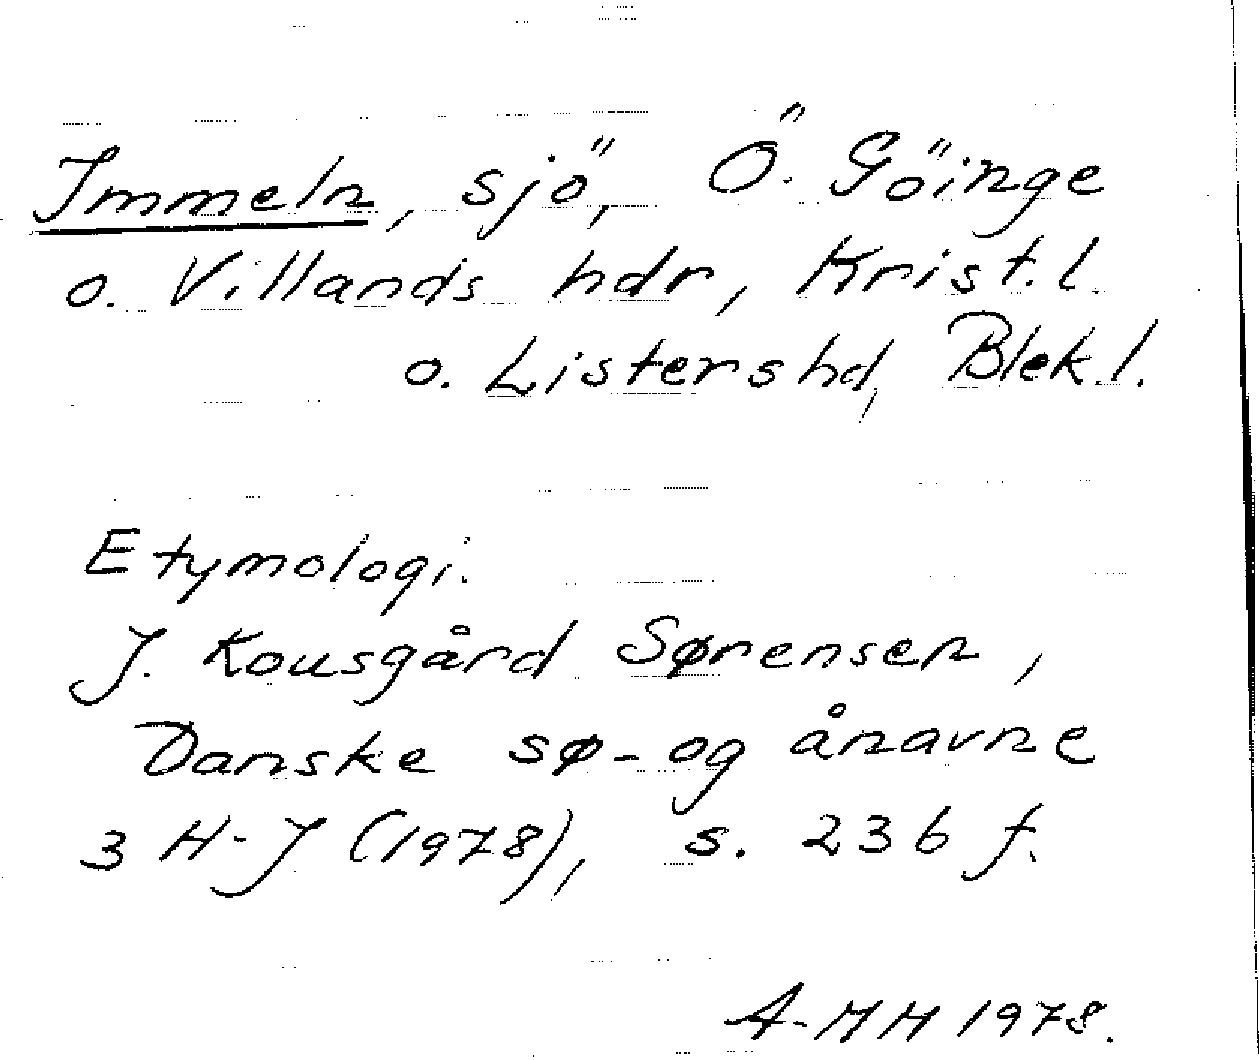 Immeln, sjö, Ö. Göinge
o. Villands hdr, Krist.l.
o. Listers hd, Blek.l.
Etymologi.
J. Kousgård Sørensen,
Danske sø- og ånavne
3 H-J (1978), s. 236 f.
A-MH 1978.